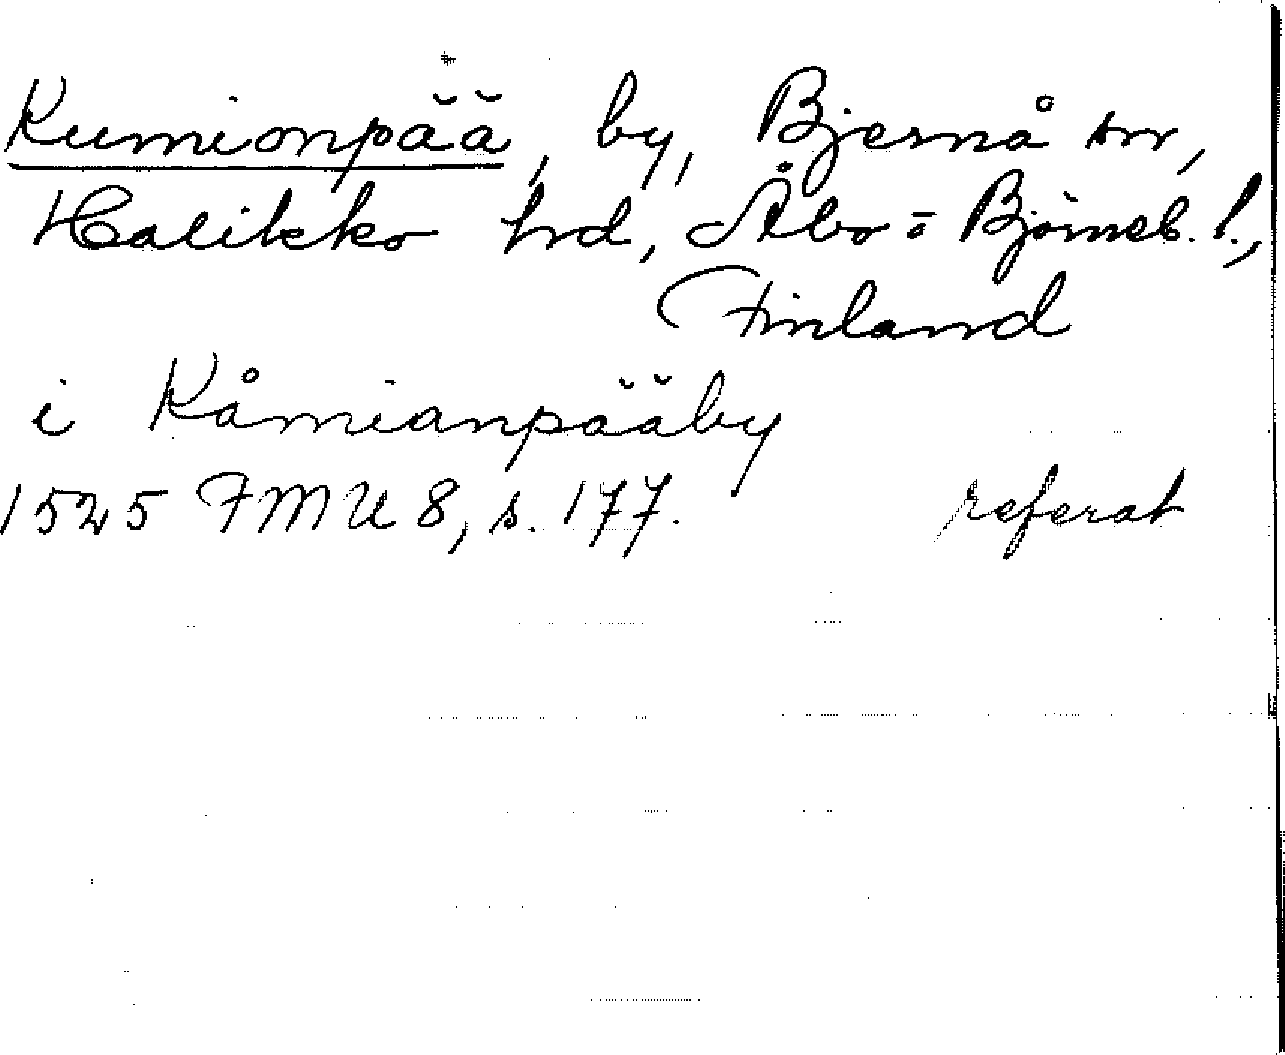 Kumionpää, by, Bjernå sn,
Halikko hd, Åbo-Björneb. l.,
Finland
i Kåmianpääby
1525 FMU 8, s. 177. referat